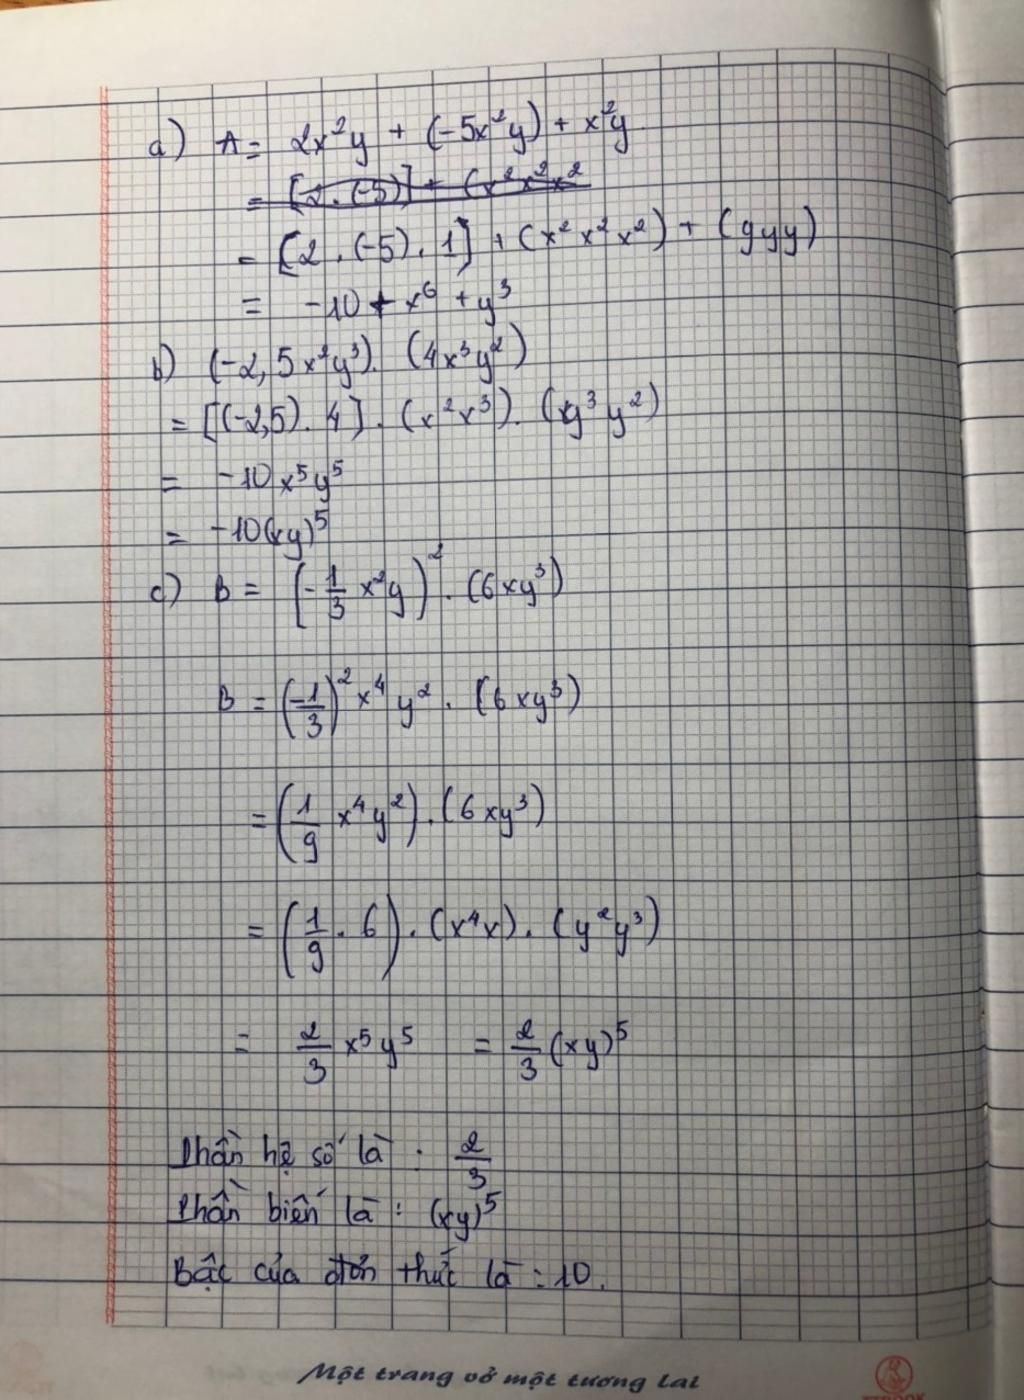 a) A = 2x²y + (-5x²y) + x²y
= [2 . (-5)] + (x²x²x²
= [2 . (-5) . 1] + (x² x² x²) + (yyy)
= -10 + x⁶ + y³
b) (-2,5x²y³). (4x³y²)
= [(-2,5). 4] . (x²x³). (y³y²)
= -10x⁵y⁵
= -10(xy)⁵
c) B = (-1/3 x²y)². (6xy³)
B = (-1/3)² x⁴ y² . (6xy³)
= (1/9 x⁴y²).(6xy³)
= (1/9 . 6).(x⁴x). (y²y³)
= 2/3 x⁵y⁵ = 2/3 (xy)⁵
Phần hệ số là : 2/3
Phần biến là : (xy)⁵
Bậc của đơn thức là : 10.
Một trang vở một tương lai